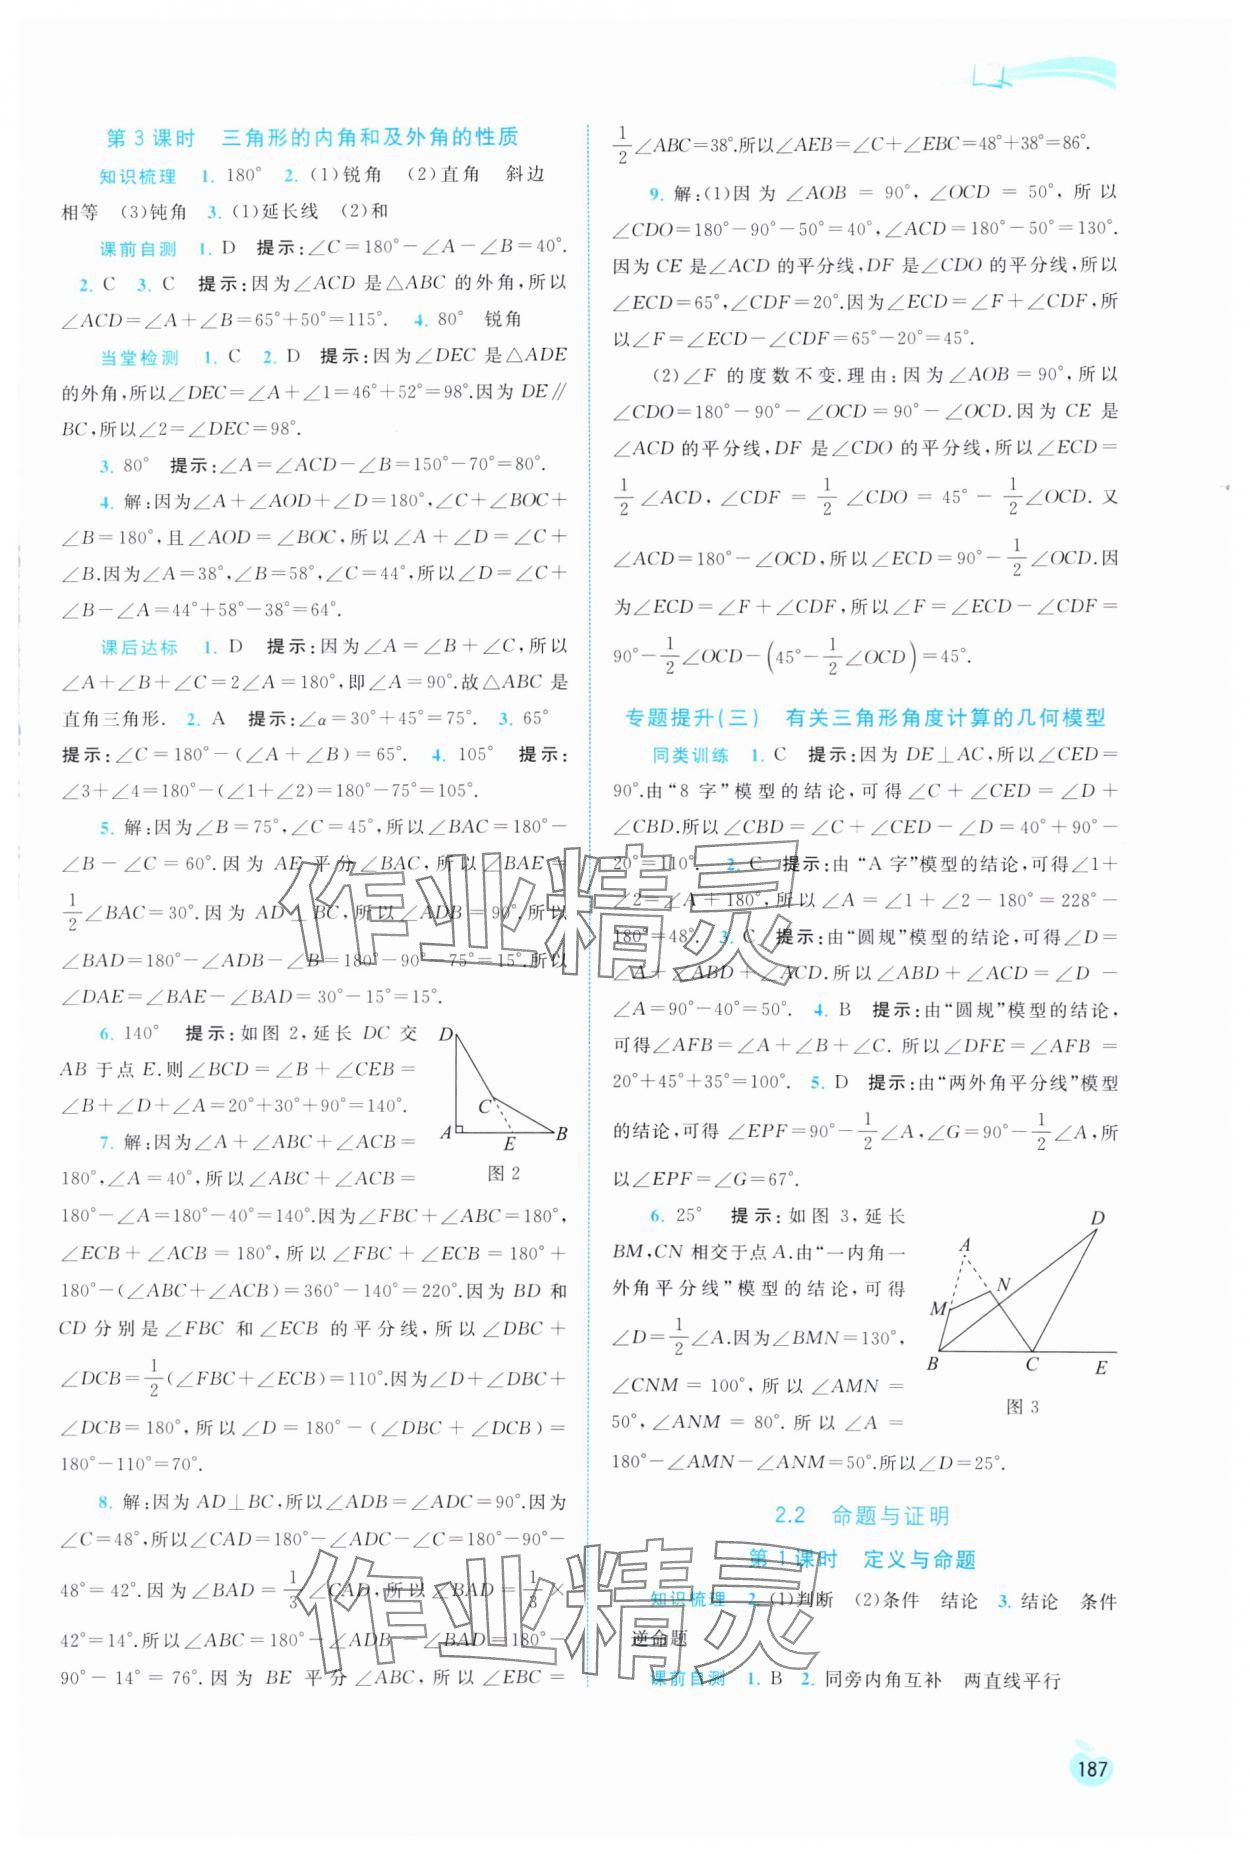 第 3 课时 三角形的内角和及外角的性质
知识梳理 1. 180° 2. (1)锐角 (2)直角 斜边
相等 (3)钝角 3. (1)延长线 (2)和
课前自测 1. D 提示:∠C=180°－∠A－∠B=40°.
2. C 3. C 提示:因为∠ACD 是△ABC 的外角,所以
∠ACD=∠A+∠B=65°+50°=115°. 4. 80° 锐角
当堂检测 1. C 2. D 提示:因为∠DEC 是△ADE
的外角,所以∠DEC=∠A+∠1=46°+52°=98°.因为 DE∥
BC,所以∠2=∠DEC=98°.
3. 80° 提示:∠A=∠ACD－∠B=150°－70°=80°.
4. 解:因为∠A+∠AOD+∠D=180°,∠C+∠BOC+
∠B=180°,且∠AOD=∠BOC,所以∠A+∠D=∠C+
∠B.因为∠A=38°,∠B=58°,∠C=44°,所以∠D=∠C+
∠B－∠A=44°+58°－38°=64°.
课后达标 1. D 提示:因为∠A=∠B+∠C,所以
∠A+∠B+∠C=2∠A=180°,即∠A=90°.故△ABC 是
直角三角形. 2. A 提示:∠α=30°+45°=75°. 3. 65°
提示:∠C=180°－(∠A+∠B)=65°. 4. 105° 提示:
∠3+∠4=180°－(∠1+∠2)=180°－75°=105°.
5. 解:因为∠B=75°,∠C=45°,所以∠BAC=180°－
∠B－∠C=60°.因为 AE 平分∠BAC,所以∠BAE=
1/2∠BAC=30°.因为 AD⊥BC,所以∠ADB=90°.所以
∠BAD=180°－∠ADB－∠B=180°－90°－75°=15°.所以
∠DAE=∠BAE－∠BAD=30°－15°=15°.
6. 140° 提示:如图 2,延长 DC 交
AB 于点 E.则∠BCD=∠B+∠CEB=
∠B+∠D+∠A=20°+30°+90°=140°.
D
C
A E B
图 2
7. 解:因为∠A+∠ABC+∠ACB=
180°,∠A=40°,所以∠ABC+∠ACB=
180°－∠A=180°－40°=140°.因为∠FBC+∠ABC=180°,
∠ECB+∠ACB=180°,所以∠FBC+∠ECB=180°+
180°－(∠ABC+∠ACB)=360°－140°=220°.因为 BD 和
CD 分别是∠FBC 和∠ECB 的平分线,所以∠DBC+
∠DCB=1/2(∠FBC+∠ECB)=110°.因为∠D+∠DBC+
∠DCB=180°,所以∠D=180°－(∠DBC+∠DCB)=
180°－110°=70°.
8. 解:因为 AD⊥BC,所以∠ADB=∠ADC=90°.因为
∠C=48°,所以∠CAD=180°－∠ADC－∠C=180°－90°－
48°=42°.因为∠BAD=1/3∠CAD,所以∠BAD=1/3×
42°=14°.所以∠ABC=180°－∠ADB－∠BAD=180°－
90°－14°=76°.因为 BE 平分∠ABC,所以∠EBC=
1/2∠ABC=38°.所以∠AEB=∠C+∠EBC=48°+38°=86°.
9. 解:(1)因为∠AOB=90°,∠OCD=50°,所以
∠CDO=180°－90°－50°=40°,∠ACD=180°－50°=130°.
因为 CE 是∠ACD 的平分线,DF 是∠CDO 的平分线,所以
∠ECD=65°,∠CDF=20°.因为∠ECD=∠F+∠CDF,所
以∠F=∠ECD－∠CDF=65°－20°=45°.
(2)∠F 的度数不变.理由:因为∠AOB=90°,所以
∠CDO=180°－90°－∠OCD=90°－∠OCD.因为 CE 是
∠ACD 的平分线,DF 是∠CDO 的平分线,所以∠ECD=
1/2∠ACD,∠CDF=1/2∠CDO=45°－1/2∠OCD.又
∠ACD=180°－∠OCD,所以∠ECD=90°－1/2∠OCD.因
为∠ECD=∠F+∠CDF,所以∠F=∠ECD－∠CDF=
90°－1/2∠OCD－(45°－1/2∠OCD)=45°.
专题提升(三) 有关三角形角度计算的几何模型
同类训练 1. C 提示:因为 DE⊥AC,所以∠CED=
90°.由“8 字”模型的结论,可得∠C+∠CED=∠D+
∠CBD.所以∠CBD=∠C+∠CED－∠D=40°+90°－
20°=110°. 2. C 提示:由“A 字”模型的结论,可得∠1+
∠2=∠A+180°,所以∠A=∠1+∠2－180°=228°－
180°=48°. 3. C 提示:由“圆规”模型的结论,可得∠D=
∠A+∠ABD+∠ACD.所以∠ABD+∠ACD=∠D－
∠A=90°－40°=50°. 4. B 提示:由“圆规”模型的结论,
可得∠AFB=∠A+∠B+∠C. 所以∠DFE=∠AFB=
20°+45°+35°=100°. 5. D 提示:由“两外角平分线”模型
的结论,可得∠EPF=90°－1/2∠A,∠G=90°－1/2∠A,所
以∠EPF=∠G=67°.
6. 25° 提示:如图 3,延长
BM,CN 相交于点 A.由“一内角一
外角平分线”模型的结论,可得
∠D=1/2∠A.因为∠BMN=130°,
∠CNM=100°,所以∠AMN=
50°,∠ANM=80°.所以∠A=
180°－∠AMN－∠ANM=50°.所以∠D=25°.
D
A
N
M
B C E
图 3
2.2 命题与证明
第 1 课时 定义与命题
知识梳理 2. (1)判断 (2)条件 结论 3. 结论 条件
逆命题
课前自测 1. B 2. 同旁内角互补 两直线平行
187
作业精灵
作业精灵